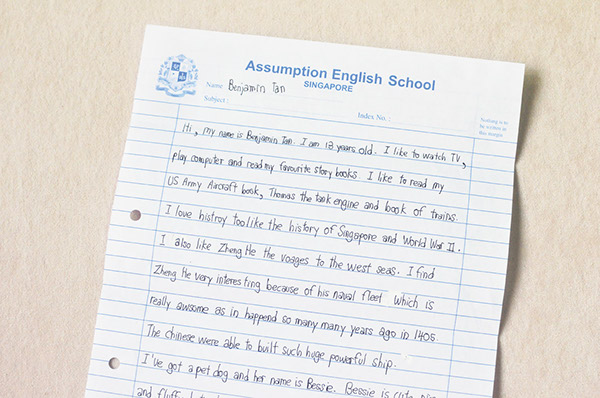 Assumption English School
SINGAPORE
Name Benjamin Tan
Subject :
Index No. :
Nothing is to
be written in
this margin
Hi, my name is Benjamin Tan. I am 13 years old. I like to watch TV,
play computer and read my favourite story books. I like to read my
US Army Aircraft book, Thomas the tank engine and book of trains.
I love histroy too like the history of Singapore and World War II.
I also like Zheng He the voages to the west seas. I find
Zheng He very interesting because of his naval fleet which is
really awsome as in happend so many many years ago in 1405.
The chinese were able to built such huge powerful ship.
I've got a pet dog and her name is Bessie. Bessie is cute,
and